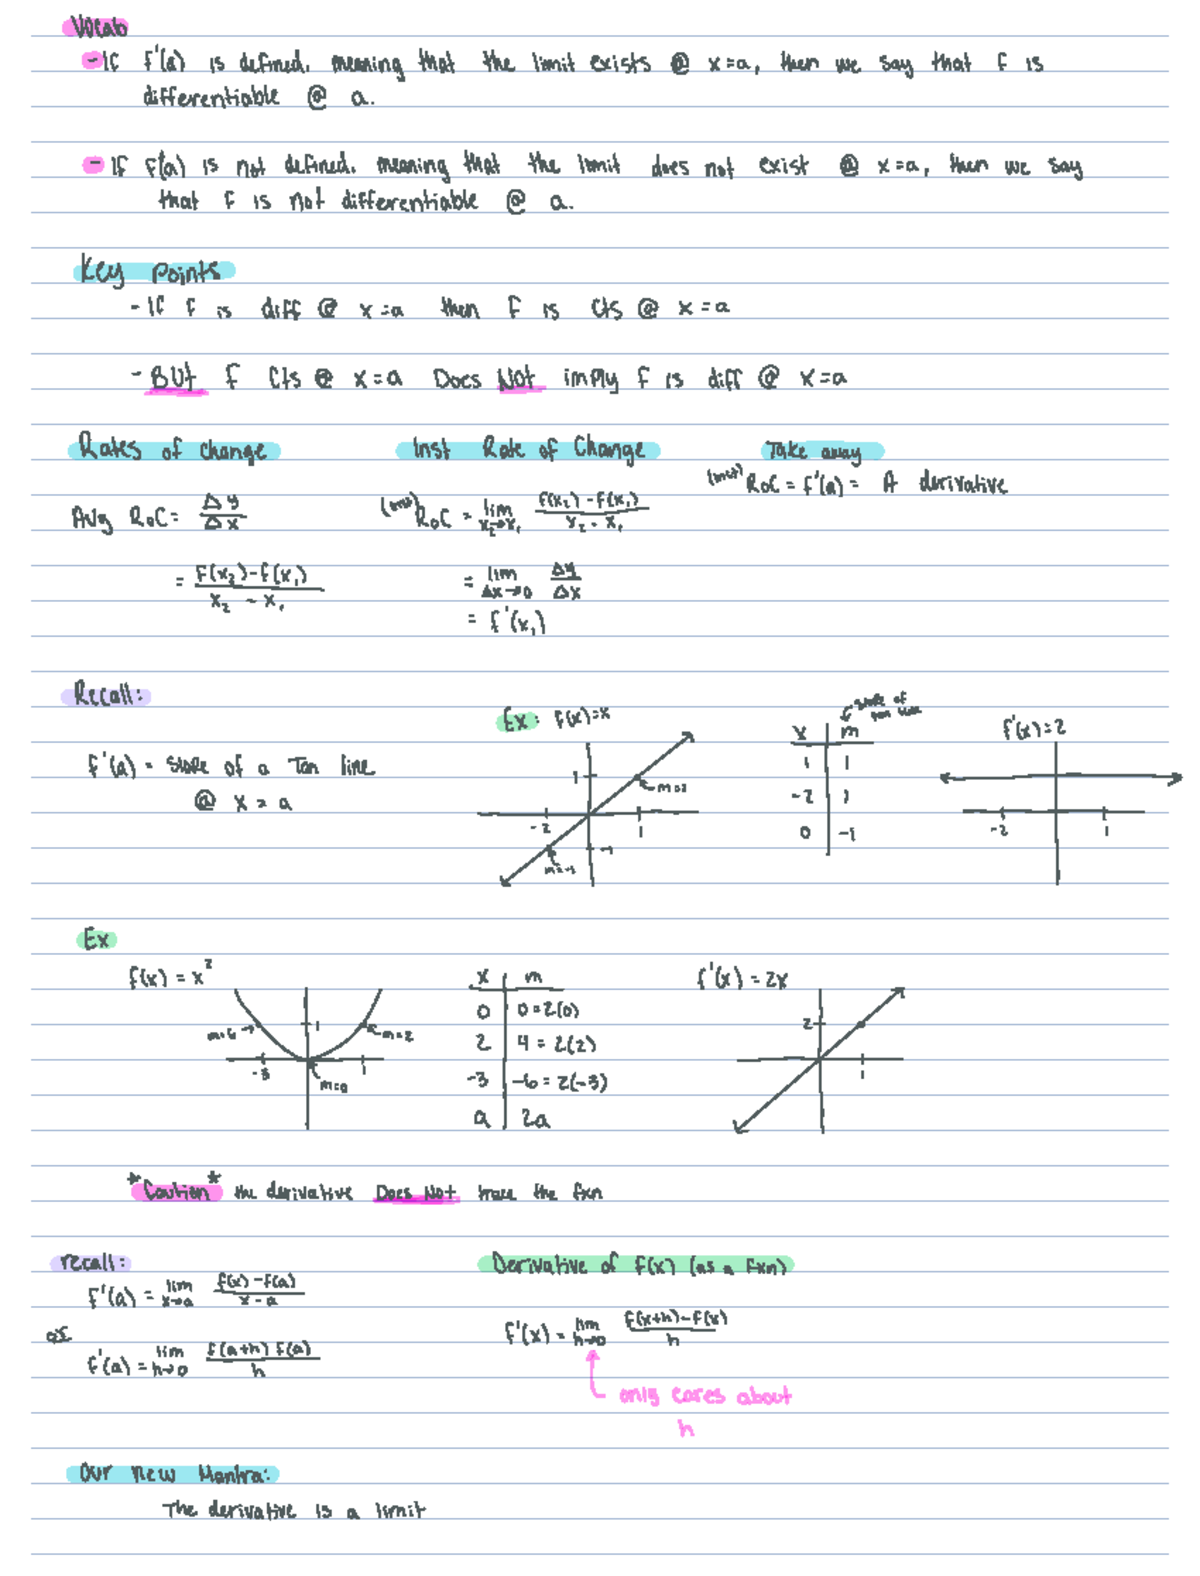 Vocab
- If f'(a) is defined, meaning that the limit exists @ x=a, then we say that f is
differentiable @ a.
- If f'(a) is not defined, meaning that the limit does not exist @ x=a, then we say
that f is not differentiable @ a.
Key points
- If f is diff @ x=a then f is cts @ x=a
- BUT f cts @ x=a Does NOT imply f is diff @ x=a
Rates of change
Avg RoC = Δy/Δx
= f(x₂)-f(x₁)/x₂ - x₁
Inst Rate of Change
(inst) RoC = lim x₂→x₁ f(x₂)-f(x₁)/x₂ - x₁
= lim Δx→0 Δy/Δx
= f'(x₁)
Take away
(inst) RoC = f'(a) = A derivative
Recall:
f'(a) = slope of a Tan line
@ x = a
Ex: f(x)=x
1
-2
1
-1
x | m
slope of
tan line
1 | 1
-2 | 1
0 | -1
f'(x)=2
-2
1
Ex
f(x) = x²
m=6
1
m=2
-3
1
m=0
x | m
0 | 0=2(0)
2 | 4=2(2)
-3 | -6=2(-3)
a | 2a
f'(x) = 2x
2
1
*Caution* the derivative Does Not trace the fxn
recall:
f'(a) = lim x→a f(x)-f(a)/x-a
or
f'(a) = lim h→0 f(a+h) f(a)/h
Derivative of f(x) (as a fxn)
f'(x) = lim h→0 f(x+h)-f(x)/h
only cares about
h
Our new Mantra:
The derivative is a limit